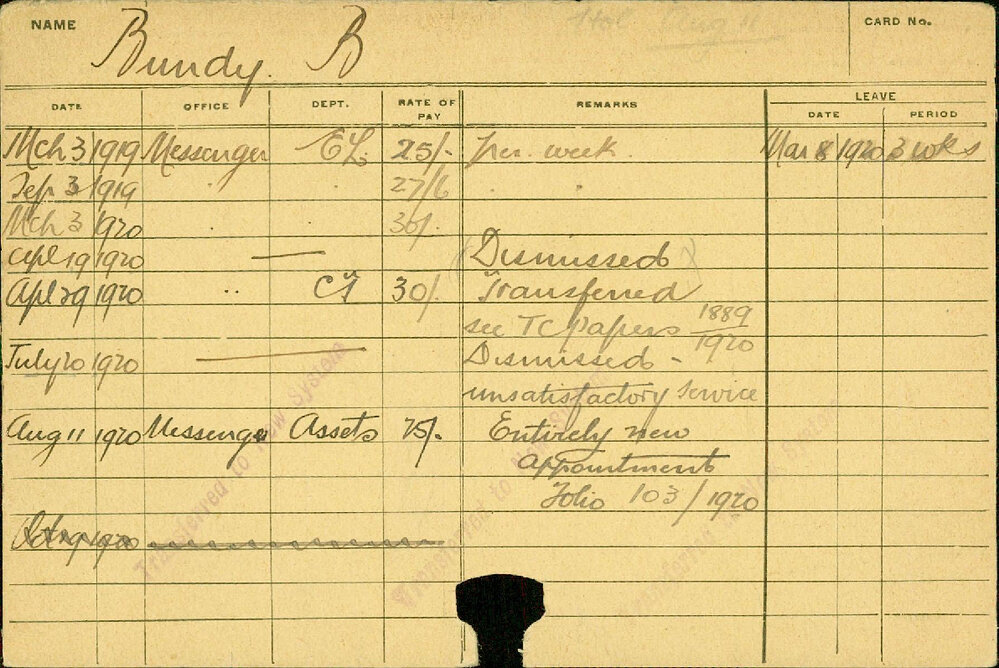 NAME Bundy. B CARD No.
DATE OFFICE DEPT. RATE OF PAY REMARKS LEAVE DATE PERIOD
Mch 3 1919 Messenger 25/- per. week. Mar 8 1920 3 wks
Sep 3 1919 " " 27/6 " "
Mch 3 1920 30/-
Apl 19 1920 — (Dismissed)
Apl 29 1920 " 30/- Transferred
see TC papers 1889/1920
July 20 1920 — Dismissed -
unsatisfactory service
Aug 11 1920 Messenger Assets 75/- Entirely new
appointment
Folio 103/1920
Oct 19 1920
Transferred to New System
Transferred to New System
Transferred to New System